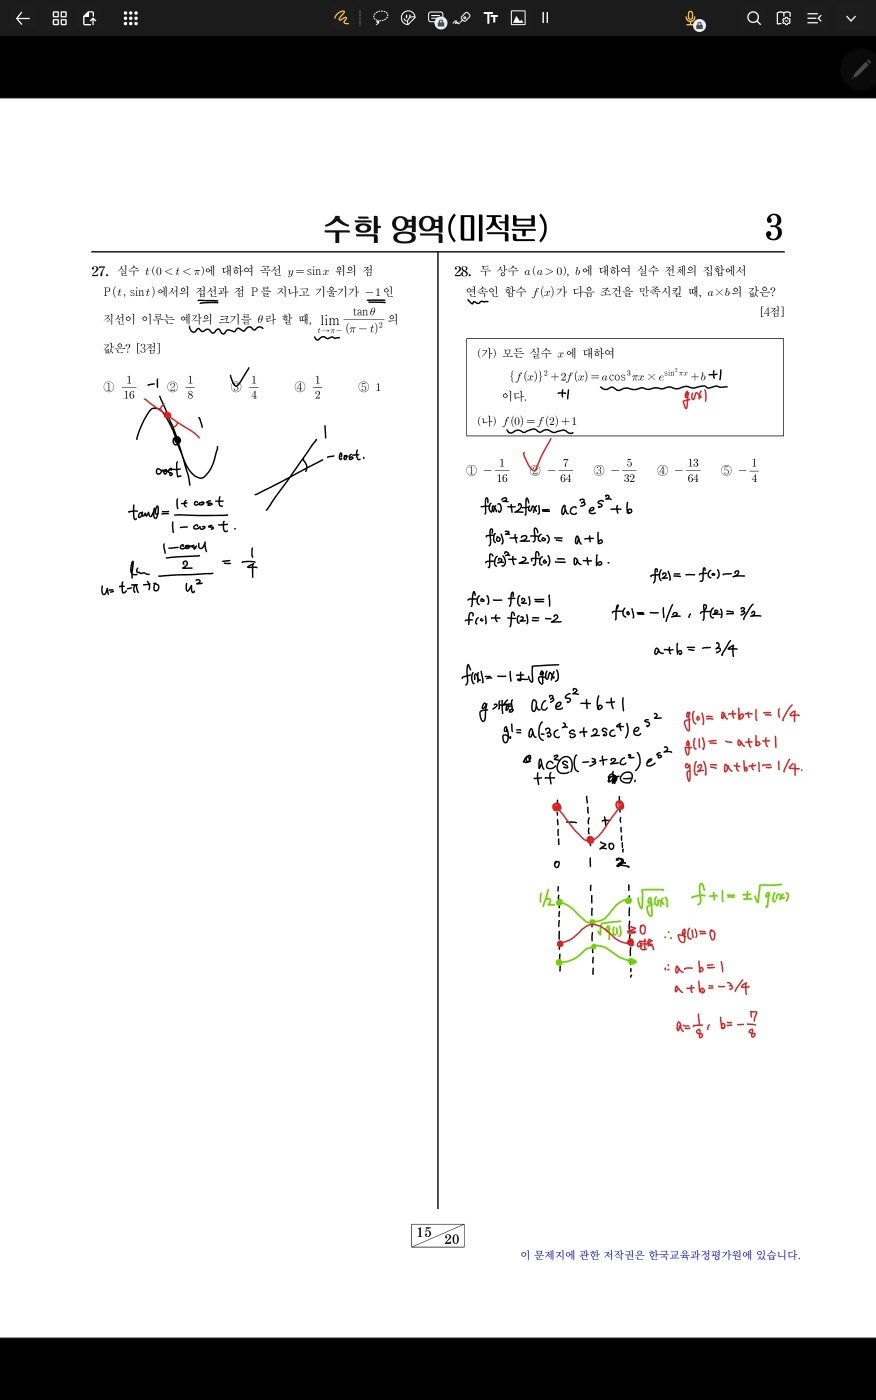 Tт
수학 영역(미적분)
3
27. 실수 t(0<t<π)에 대하여 곡선 y=sinx 위의 점
P(t, sint)에서의 접선과 점 P를 지나고 기울기가 −1인
직선이 이루는 예각의 크기를 θ라 할 때, lim t→π− tanθ/(π−t)² 의
값은? [3점]
① 1/16 ② 1/8 ③ 1/4 ④ 1/2 ⑤ 1
-1
1
cost
1
-cost.
tanθ = 1+cost / 1-cost.
lim u=t-π→0 (1-cosu / 2) / u² = 1/4
28. 두 상수 a(a>0), b에 대하여 실수 전체의 집합에서
연속인 함수 f(x)가 다음 조건을 만족시킬 때, a×b의 값은?
[4점]
(가) 모든 실수 x에 대하여
{f(x)}²+2f(x)=acos³πx×e^(sin²πx)+b +1
이다. +1 g(x)
(나) f(0)=f(2)+1
① −1/16 ② −7/64 ③ −5/32 ④ −13/64 ⑤ −1/4
f(x)²+2f(x)= ac³e^(s²)+b
f(0)²+2f(0) = a+b
f(2)²+2f(2) = a+b.
f(2)=-f(0)-2
f(0)-f(2)=1
f(0)+f(2)=-2
f(0)=-1/2, f(2)=3/2
a+b=-3/4
f(x)=-1±√g(x)
ac³e^(s²)+b+1
g'= a(-3c²s+2sc⁴)e^(s²)
ac²s(-3+2c²)e^(s²)
++ ⊖.
g(0)= a+b+1=1/4
g(1)= -a+b+1
g(2)= a+b+1=1/4.
- +
≥0
0 1 2
1/2 √g(x) f+1=±√g(x)
√g(1) ≥0
∴ g(1)=0
∴ a-b=1
a+b=-3/4
a=1/8, b=-7/8
15 / 20
이 문제지에 관한 저작권은 한국교육과정평가원에 있습니다.